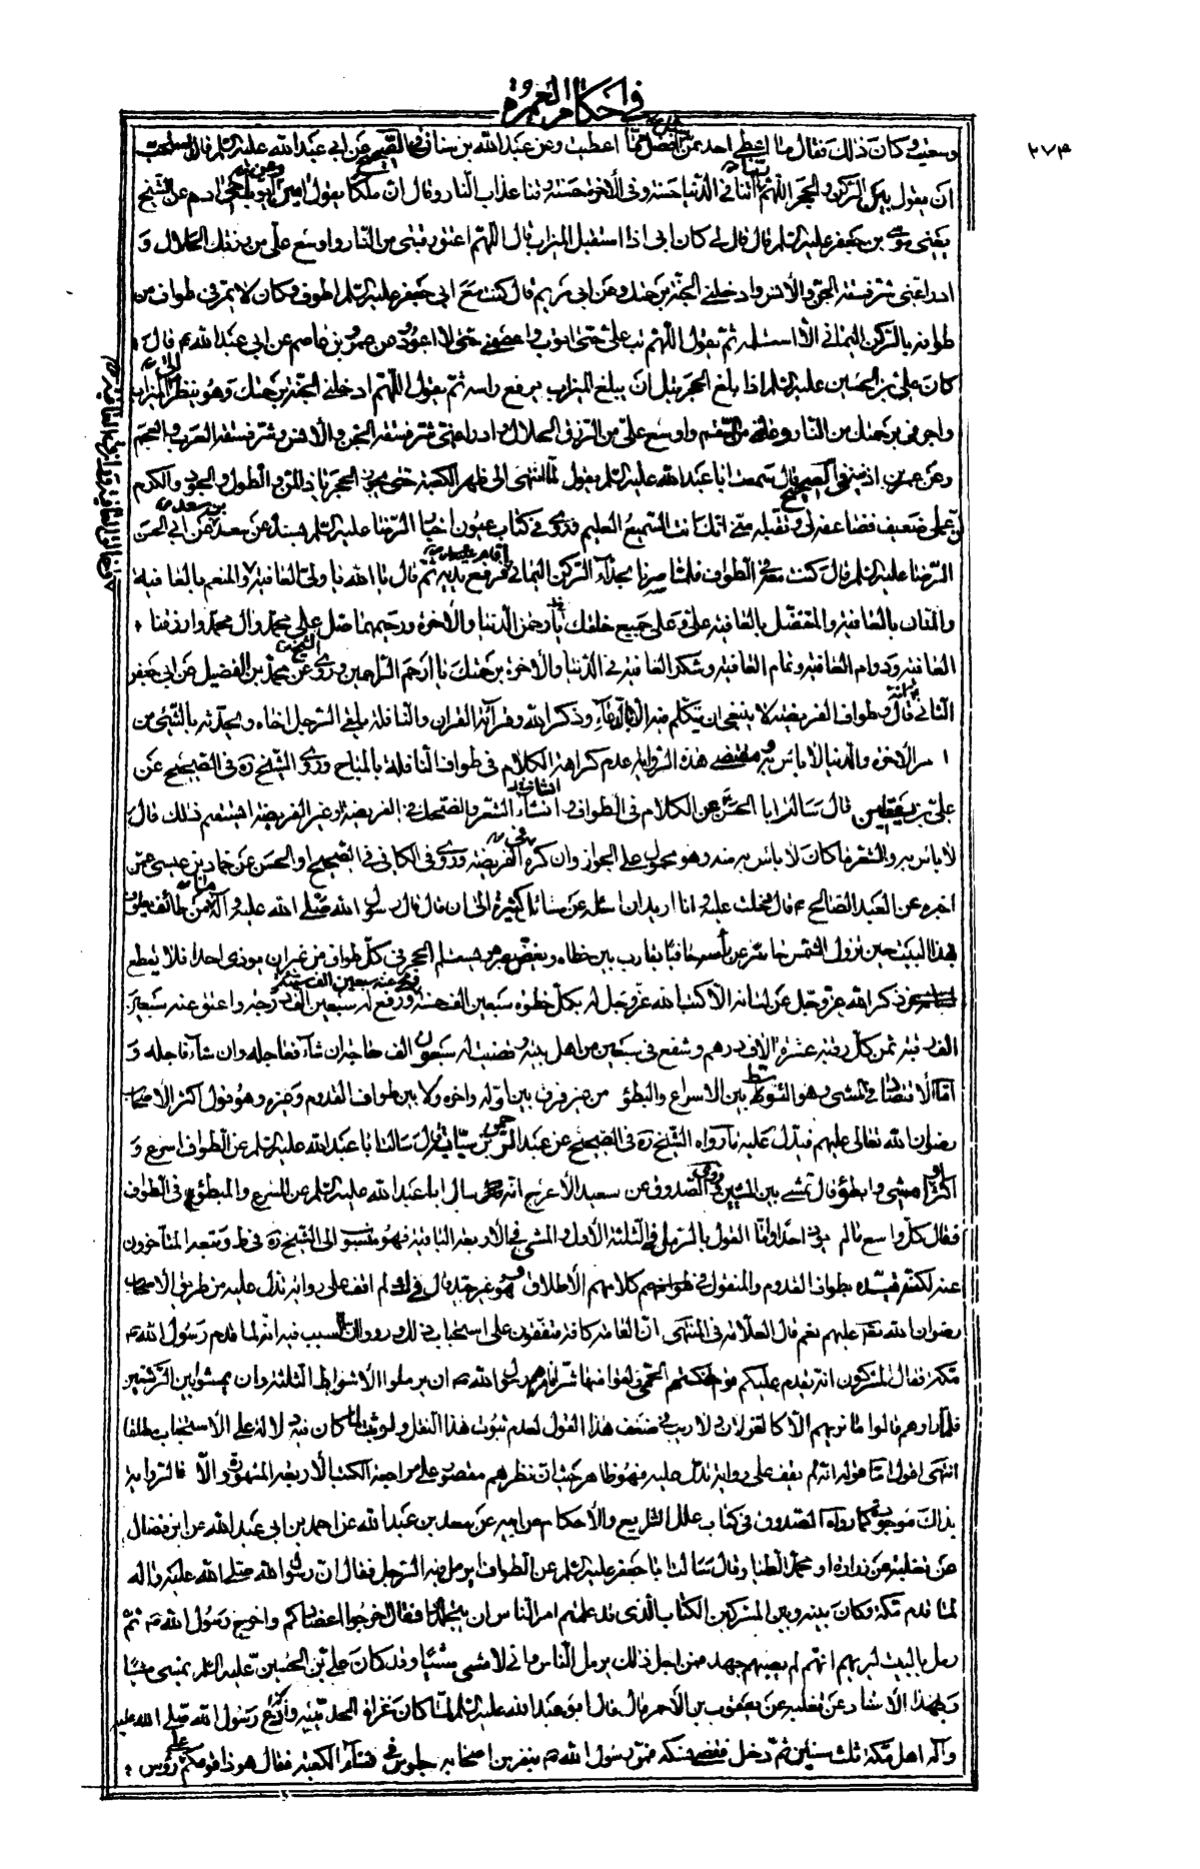 في احكام العمرة
٢٧٤
وسعيت وكان ذلك فقال ما اعطي احد ممن افضل مما اعطيت وعن عبد الله بن سنان في الصحيح عن ابي عبد الله عليه السلم قال يستحب
ان يقول بين الركن والحجر اللهم اتنا في الدنيا حسنة وفي الاخرة حسنة وقنا عذاب النار وقال ان ملكا يقول امين وعن ادم عن الشيخ
يعني موسى بن جعفر عليه السلم قال قال لي كان ابي اذا استقبل الميزاب قال اللهم اعتق رقبتي من النار واوسع علي من رزقك الحلال و
ادرا عني شر فسقة الجن والانس وادخلني الجنة برحمتك وعن ابي مريم قال كنت مع ابي جعفر عليه السلم اطوف وكان لا يمر في طواف من
طوافه بالركن اليماني الا استلمه ثم يقول اللهم تب علي حتى اتوب واعصمني حتى لا اعود وعن عمرو بن عاصم عن ابي عبد الله ع قال
كان علي بن الحسين عليه السلم اذا بلغ الحجر قبل ان يبلغ الميزاب يرفع راسه ثم يقول اللهم ادخلني الجنة برحمتك وهو ينظر الى الميزاب
واجرني برحمتك من النار وعافني من السقم واوسع علي من الرزق الحلال وادرا عني شر فسقة الجن والانس وشر فسقة العرب والعجم
وعن عمر بن اذينة في الصحيح قال سمعت ابا عبد الله عليه السلم يقول لما انتهى الى ظهر الكعبة حتى يجوز الحجر يا ذا المن والطول والجود والكرم
ان عملي ضعيف فضاعفه لي وتقبله مني انك انت السميع العليم وروى في كتاب عيون اخبار الرضا عليه السلم بسنده عن سعد بن سعد عن ابي الحسن
الرضا عليه السلم قال كنت معه في الطواف فلما صرنا بحذاء الركن اليماني اقام عليه السلم فرفع يديه ثم قال يا الله يا ولي العافية والمنعم بالعافية
والمنان بالعافية والمتفضل بالعافية علي وعلى جميع خلقك يا رحمن الدنيا والاخرة ورحيمهما صل على محمد وال محمد وارزقنا
العافية ودوام العافية وتمام العافية وشكر العافية في الدنيا والاخرة برحمتك يا ارحم الراحمين وروى الشيخ عن محمد بن الفضيل عن ابي جعفر
الثاني قال وطواف الفريضة لا ينبغي ان يتكلم فيه الا بالدعاء وذكر الله وقرائة القران والنافلة يلقى الرجل اخاه ويحدثه بالشئ من
امر الاخرة والدنيا لا باس به ومقتضى هذه الرواية عدم كراهة الكلام في طواف النافلة بالمباح وروى الشيخ ره في الصحيح عن
علي بن يقطين قال سالت ابا الحسن ع عن الكلام في الطواف وانشاد الشعر والضحك في الفريضة او غير الفريضة ايستقيم ذلك قال
لا باس به والشعر ما كان لا باس به منه وهو محمول على الجواز وان كره في الفريضة وروى في الكافي في الصحيح او الحسن عن حماد بن عيسى عمن
اخبره عن العبد الصالح ع قال دخلت عليه وانا اريد ان اسئله عن مسائل كثيرة الى ان قال قال رسول الله صلى الله عليه وآله ما من طائف يطوف
بهذا البيت حين تزول الشمس حاسرا عن راسه حافيا يقارب بين خطاه ويغض بصره ويستلم الحجر في كل طواف من غير ان يوذي احدا ولا يقطع
ذكر الله عز وجل عن لسانه الا كتب الله عز وجل له بكل خطوة سبعين الف حسنة ومحى عنه سبعين الف سيئة ورفع له سبعين الف درجة واعتق عنه سبعين
الف رقبة ثمن كل رقبة عشرة الاف درهم وشفع في سبعين من اهل بيته وقضيت له سبعون الف حاجة ان شاء فعاجله وان شاء فاجله و
اما الاقتصاد في المشي وهو التوسط بين الاسراع والبطؤ من غير فرق بين اوله واخره ولا بين طواف القدوم وغيره وهو قول اكثر الاصحاب
رضوان الله تعالى عليهم فيدل عليه ما رواه الشيخ ره في الصحيح عن عبد الرحمن بن سيابة قال سالت ابا عبد الله عليه السلم عن الطواف اسرع و
اكثر او امشي وابطؤ قال تمشي بين المشيين وروى الصدوق عن سعيد الاعرج انه سال ابا عبد الله عليه السلم عن المسرع والمبطؤ في الطواف
فقال كل واسع ما لم يوذ احدا واما القول بالرمل في الثلثة الاول والمشي في الاربعة الباقية فهو منسوب الى الشيخ ره في ط وتبعه المتأخرون
عنه لكنه قيده بطواف القدوم والمنقول في ظواهر كلامهم الاطلاق وهو غير جيد قال في لم اقف على رواية تدل عليه من طريق الاصحاب
رضوان الله عليهم نعم قال العلامة في المنتهى ان العامة كافة متفقون على استحباب ذلك ورووا ان السبب فيه انه لما قدم رسول الله ص
مكة فقال المشركون انه يقدم عليكم قوم نهكتهم الحمى ولقوا منها شرا فامرهم رسول الله ص ان يرملوا الاشواط الثلثة وان يمشوا بين الركنين
فلما راوهم قالوا ما نريهم الا كالغزلان ولا ريب في ضعف هذا القول لعدم ثبوت هذا النقل ولو ثبت لما كان فيه دلالة على الاستحباب مطلقا
انتهى اقول اما قوله انه لم يقف على رواية تدل عليه فهو ظاهر حيث ان نظرهم مقصور على مراجعة الكتب الاربعة المشهورة والا فالرواية
بذلك موجودة كما رواه الصدوق في كتاب علل الشرايع والاحكام عن ابيه عن سعد بن عبد الله عن احمد بن ابي عبد الله عن ابن فضال
عن ثعلبة عن زرارة او محمد الطيار وقال سالت ابا جعفر عليه السلم عن الطواف ايرمل فيه الرجل فقال ان رسول الله صلى الله عليه واله
لما قدم مكة وكان بينه وبين المشركين الكتاب الذي قد علمتم امر الناس ان يتجلدوا فقال اخرجوا اعضادكم واخرج رسول الله ص ثم
رمل بالبيت ليريهم انهم لم يصبهم جهد فمن اجل ذلك يرمل الناس واني لامشي مشيا وقد كان علي بن الحسين عليه السلم يمشي مشيا
وبهذا الاسناد عن ثعلبة عن يعقوب بن الاحمر قال قال ابو عبد الله عليه السلم لما كان غزاة الحديبية وادع رسول الله صلى الله عليه
وآله اهل مكة ثلث سنين ثم دخل فقضى نسكه فمر رسول الله ص بنفر من اصحابه جلوس في فناء الكعبة فقال هو ذا قومكم على رؤس